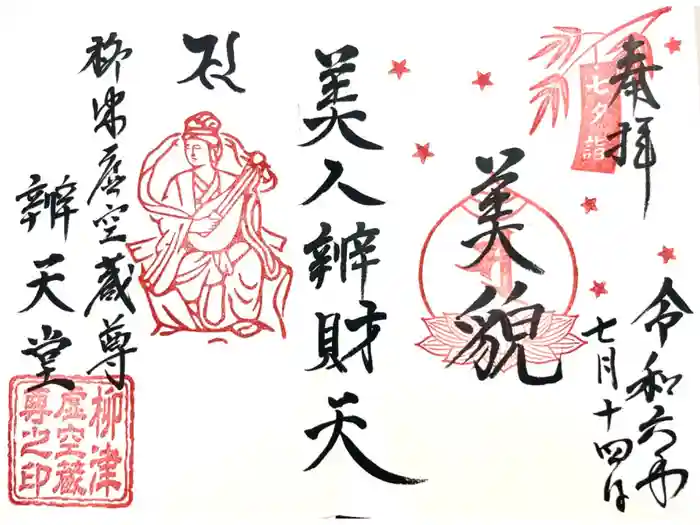 奉拝
七夕詣
令和六年
七月十四日
美貌
美人辨財天
柳津虚空蔵尊
辨天堂
柳津
虚空蔵
尊之印